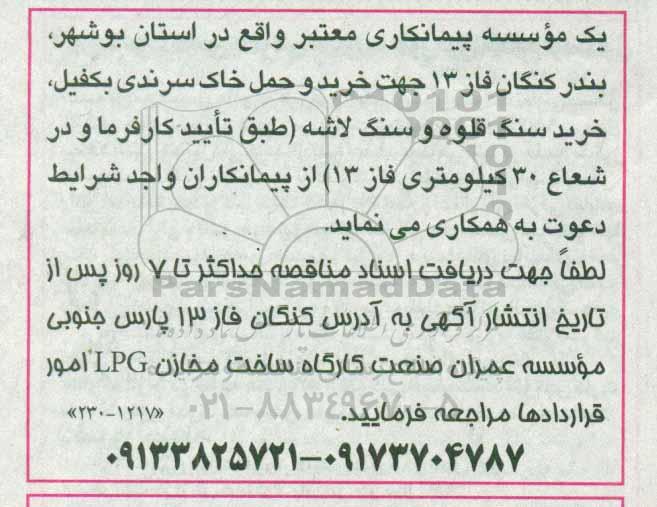 یک مؤسسه پیمانکاری معتبر واقع در استان بوشهر،
بندر کنگان فاز ۱۳ جهت خرید و حمل خاک سرندی بکفیل،
خرید سنگ قلوه و سنگ لاشه (طبق تأیید کارفرما و در
شعاع ۳۰ کیلومتری فاز ۱۳) از پیمانکاران واجد شرایط
دعوت به همکاری می نماید.
لطفاً جهت دریافت اسناد مناقصه حداکثر تا ۷ روز پس از
ParsNamadData
تاریخ انتشار آگهی به آدرس کنگان فاز ۱۳ پارس جنوبی
مؤسسه عمران صنعت کارگاه ساخت مخازن LPG امور
قراردادها مراجعه فرمایید.
«۲۳۰-۱۲۱۷»
۰۲۱-۸۸۳۴۹۶۷۰-۵
۰۹۱۳۳۸۲۵۷۲۱-۰۹۱۷۳۷۰۴۷۸۷